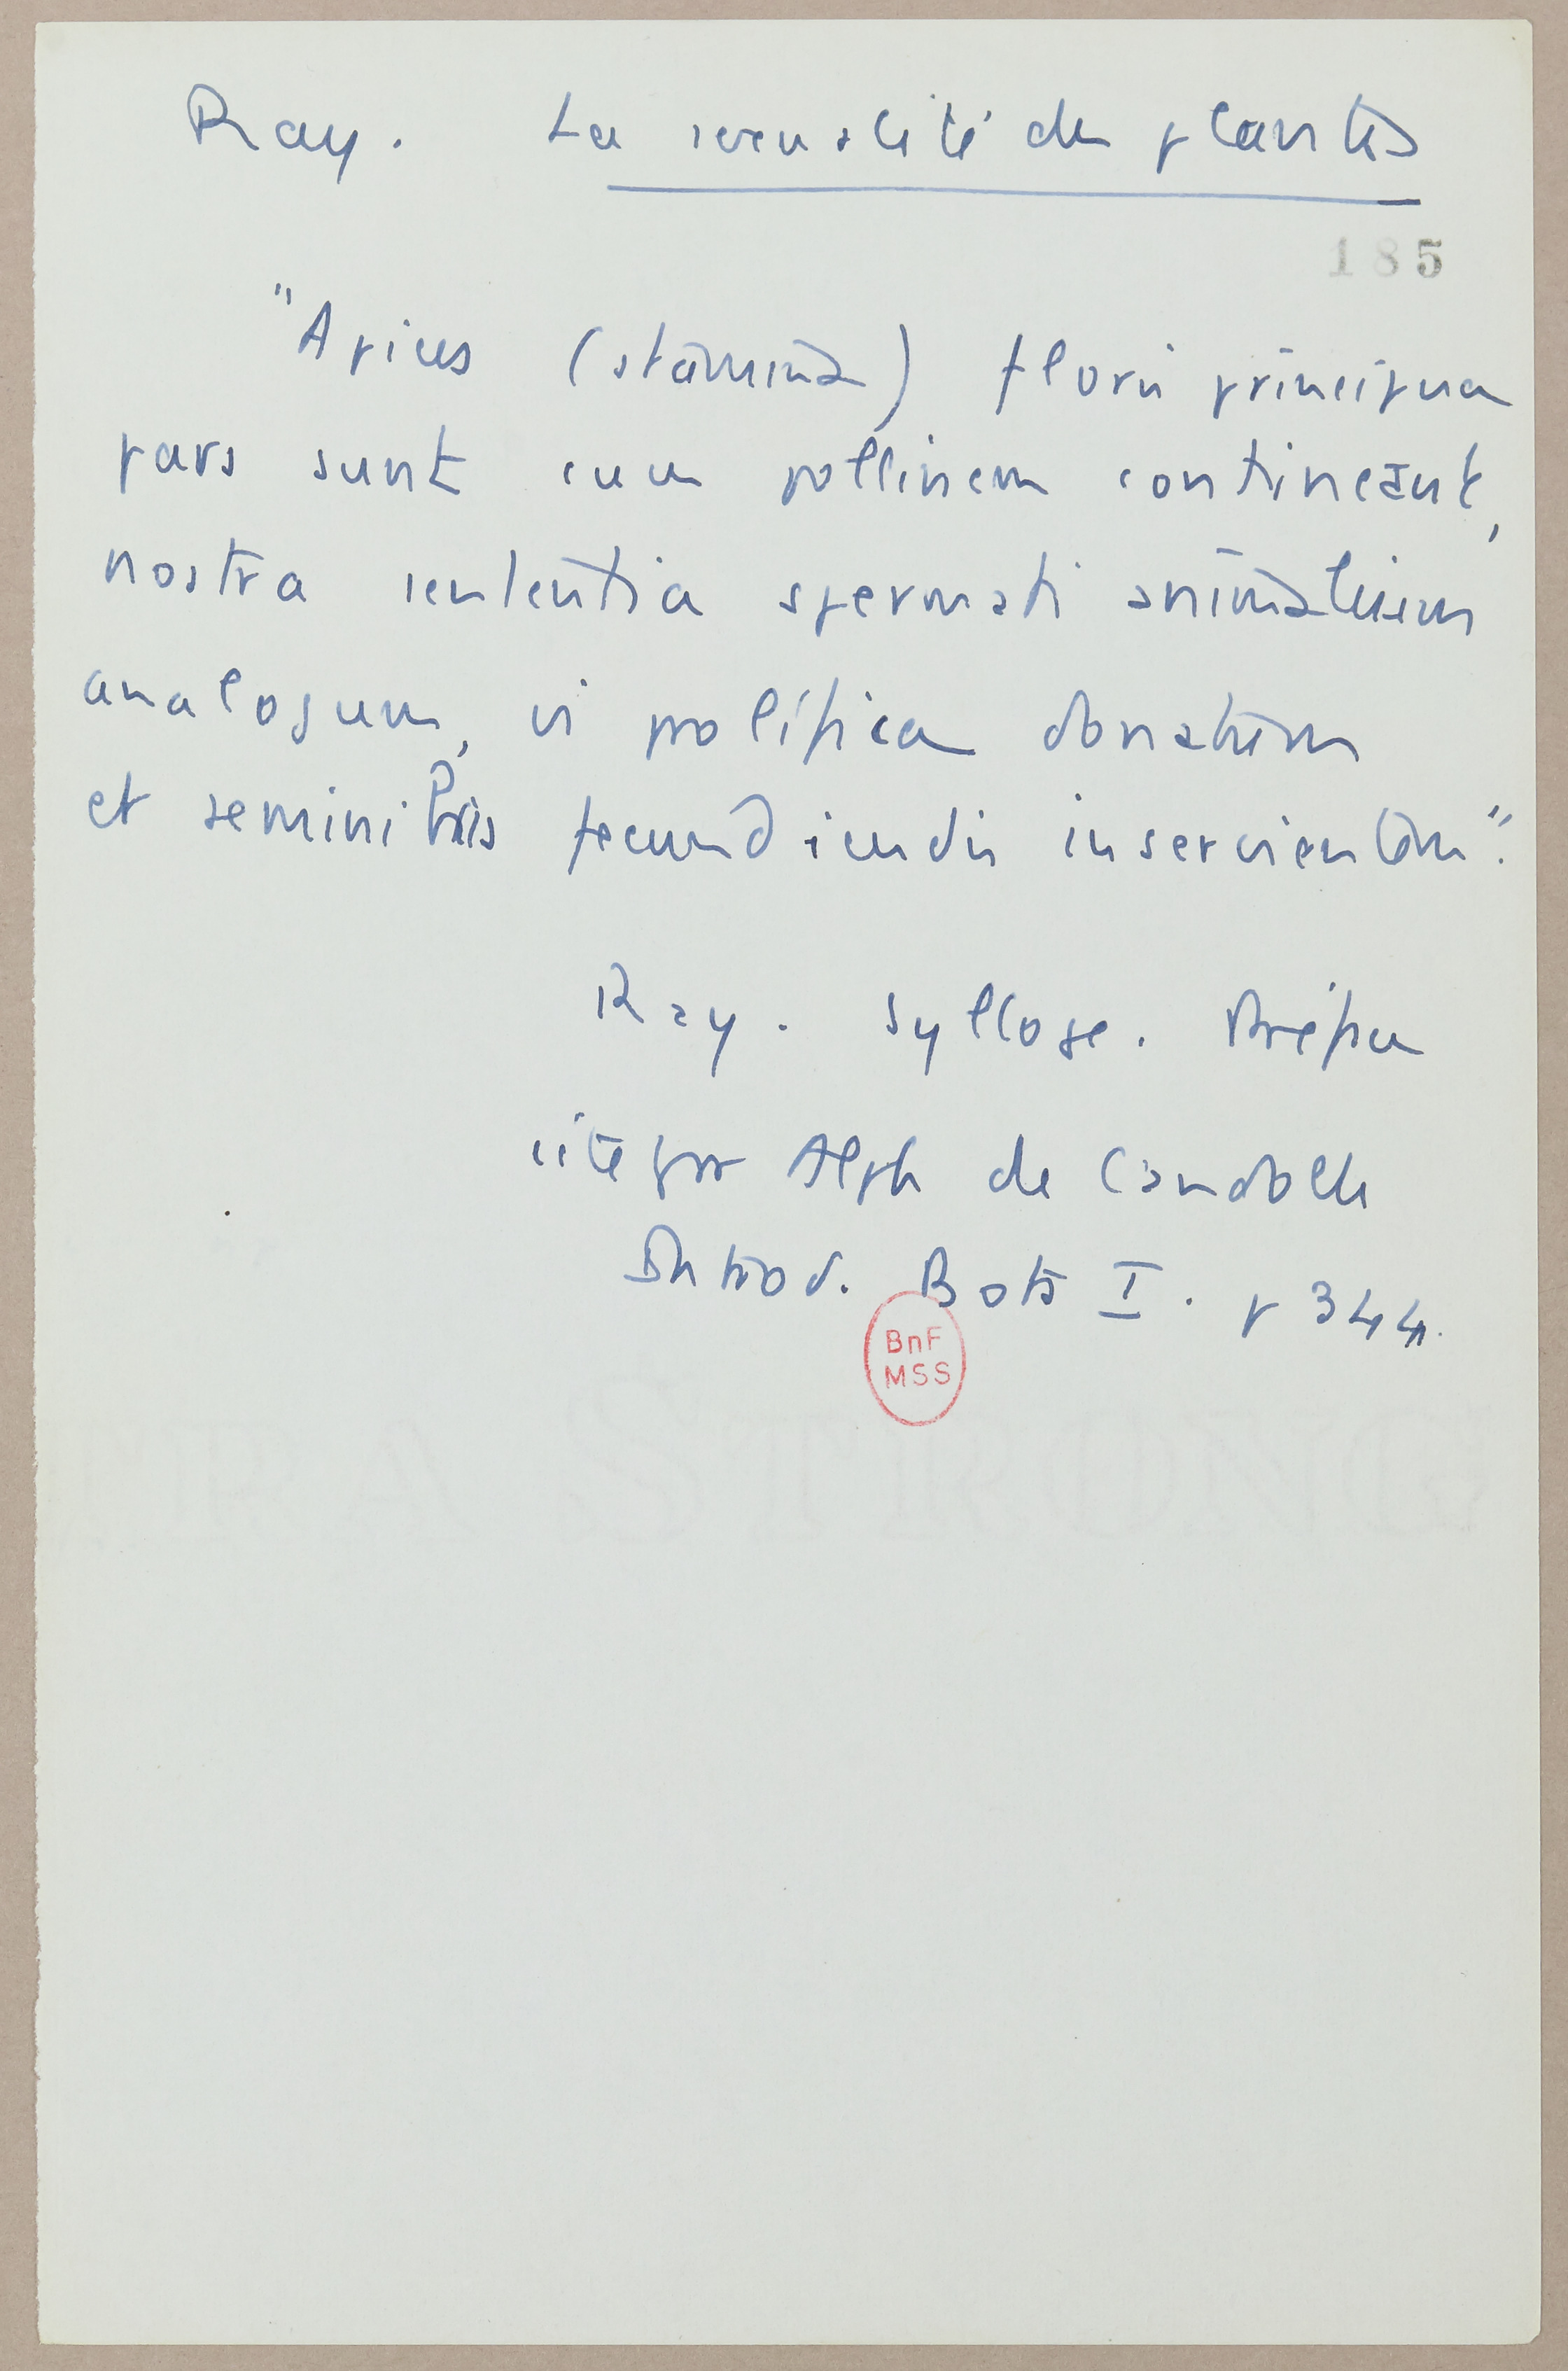 Ray. La sexualité des plantes
185
"Apices (stamina) floris principua
pars sunt cum pollinem contineant,
nostra sententia spermati animalium
analogum, vi prolifica donatum
et seminibus fecundiendis inservientem".
Ray. Sylloge. Préface
cité par Alph de Candolle
Introd. Bota I. p 344.
BnF
MSS